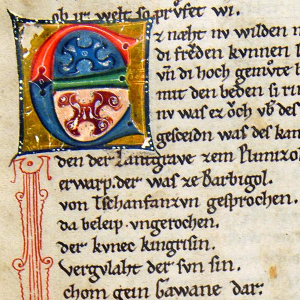 ob ir welt so prvfet wi.
Ez næht nv wilden m
di frevden kvnnen
vn di hoch gemvte
mit den beden si rv
nv was ez ovch vb des
gesceidn was des kam
den der Lantgrave zem Plimizol
erwarp. der was ze Barbigol.
von Tschanfanzvn gesprochen.
da beleip vngerochen.
der kvnec kingrisin.
Vergvlaht der svn sin.
chom gein Gawane dar: